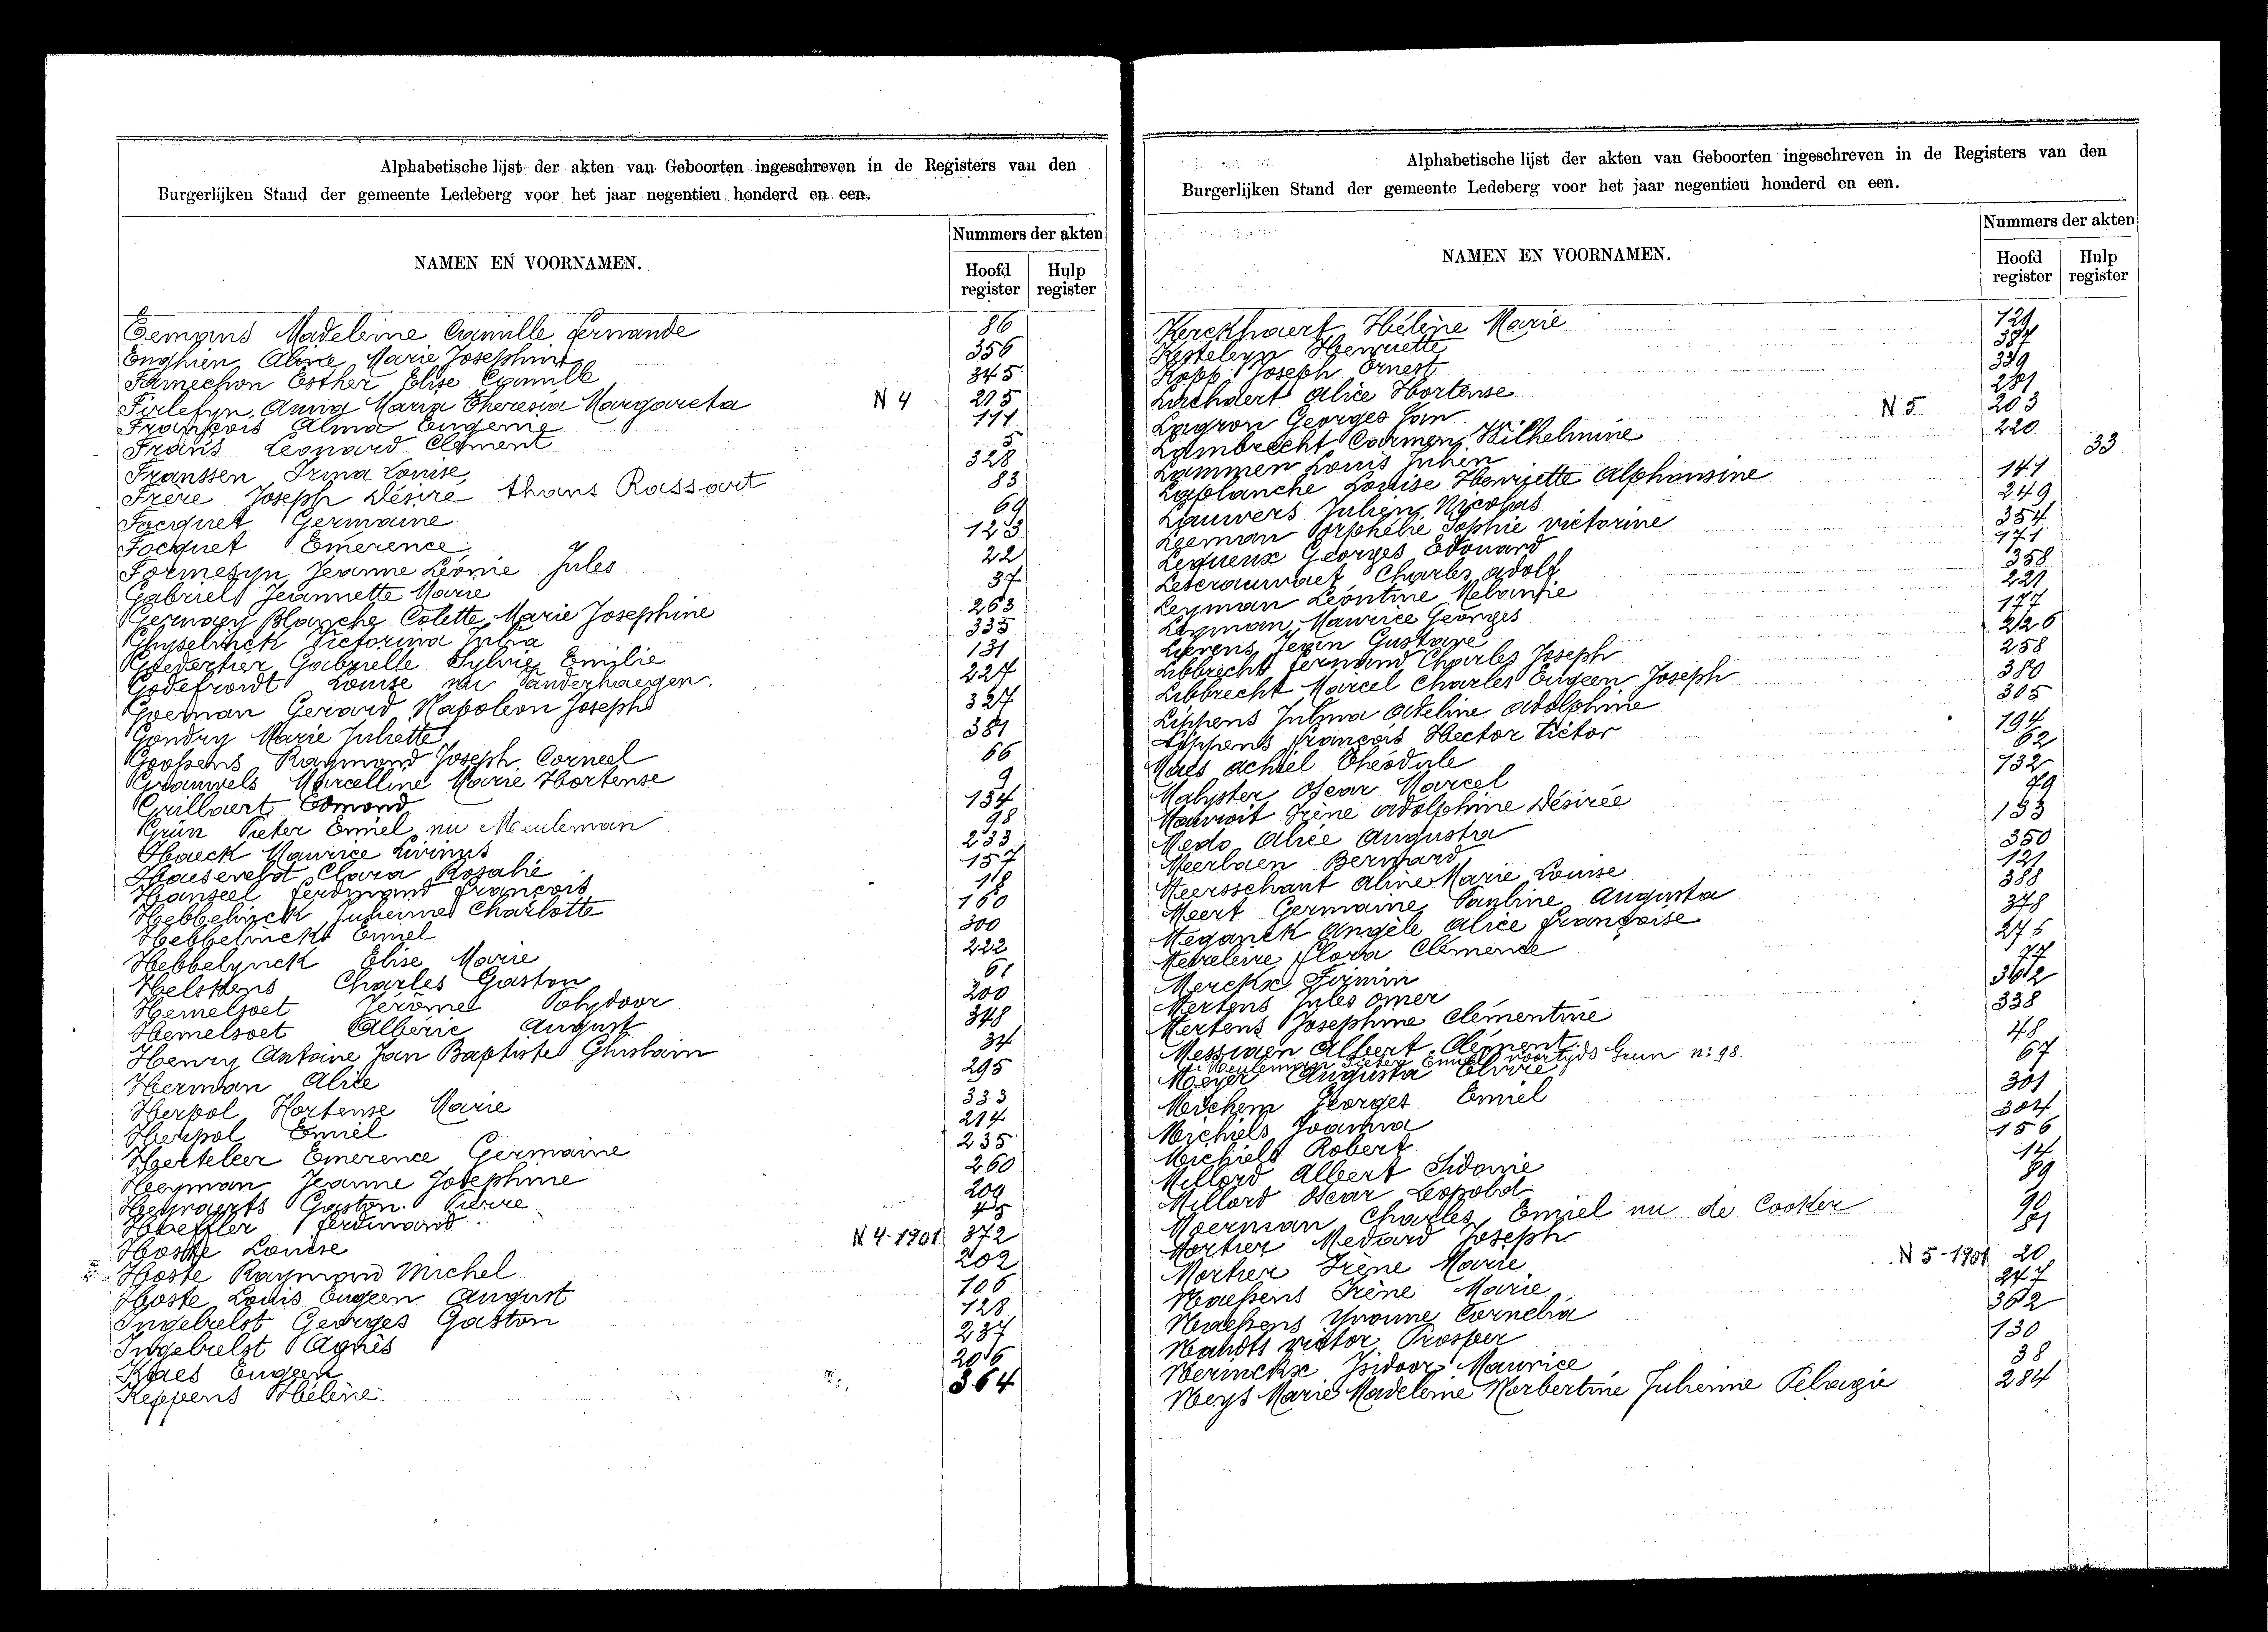 Alphabetische lijst der akten van Geboorten ingeschreven in de Registers van den
Burgerlijken Stand der gemeente Ledeberg voor het jaar negentieu honderd en een.
NAMEN EN VOORNAMEN.
Nummers der akten
Hoofd register
Hulp register
Eemans Madeleine Camille Fernande 86
Enghien Aline Marie Josephine 356
Famechon Esther Elise Camille 345
Firlefyn Anna Maria Theresia Margareta N 4 215
François Alma Eugenie 111
Frans Leonard Clement 5
Franssen Irma Louise 328
Frère Joseph Désiré thans Rassart 83
Focquet Germaine 69
Focquet Emerence 123
Formesyn Jeanne Léonie Jules 22
Gabriels Jeannette Marie 37
Gernaey Blanche Colette Marie Josephine 263
Ghyselinck Victorina Julia 335
Goedertier Gabrielle Sylvie Emilie 131
Godefroidt Louise nu Vanderhaegen. 227
Goeman Gerard Napoleon Joseph 327
Gondry Marie Juliette 381
Goossens Raymond Joseph Corneel 66
Grauwels Marcelline Marie Hortense 9
Grillaert Edmond 134
Grün Pieter Emiel nu Meuleman 98
Haeck Maurice Livinus 233
Haesevelst Clara Rosalie 157
Hanseel Ferdinand François 18
Hebbelinck Julienne Charlotte 160
Hebbelinck Emiel 300
Hebbelynck Elise Marie 222
Helskens Charles Gaston 61
Hemelsoet Jérôme Polydoor 200
Hemelsoet Alberic August 348
Henry Antoine Jan Baptiste Ghislain 34
Herman Alice 295
Herpol Hortense Marie 333
Herpol Emiel 214
Herteleer Emerence Germaine 235
Heyman Jeanne Josephine 260
Heyvaerts Gaston Pierre 209
Hoeffler Ferdinand 45
Hoste Louise N 4-1901 372
Hoste Raymond Michel 202
Hoste Louis Eugeen August 106
Ingebelst Georges Gaston 128
Ingebelst Agnès 237
Klaes Eugeen 206
Keppens Hélène 364
Alphabetische lijst der akten van Geboorten ingeschreven in de Registers van den
Burgerlijken Stand der gemeente Ledeberg voor het jaar negentieu honderd en een.
NAMEN EN VOORNAMEN.
Nummers der akten
Hoofd register
Hulp register
Kerckhaert Hélène Marie 129
Kesteleyn Henriette 387
Kopp Joseph Ernest 339
Lachaert Alice Hortense 281
Lagron Georges Jan N 5 203
Lambrecht Carmen Wilhelmine 220
Lammen Louis Julien 33
Laplanche Louise Henriette Alphonsine 141
Lauwers Julien Nicolas 249
Leeman Orphélie Sophie Victorine 354
Lequeux Georges Edouard 171
Leterauwaet Charles Adolf 358
Leyman Léontine Melanie 221
Leyman Maurice Georges 177
Lievens Jean Gustave 226
Libbrecht Fernand Charles Joseph 258
Libbrecht Marcel Charles Eugeen Joseph 380
Lippens Julma Adeline Adolphine 305
Lippens François Hector Victor 194
Maes Achiel Théodule 62
Malyster Oscar Marcel 132
Mauroit Irène Adolphine Désirée 79
Medo Alice Augusta 133
Meerbaen Bernard 350
Meersschaut Aline Marie Louise 121
Meert Germaine Pauline Augusta 388
Meganck Angèle Alice Françoise 348
Flora Clemence 276
Merckx Firmin 77
Mertens Jules Omer 362
Mertens Josephine Clementine 338
Messiaen Albert Clément 48
Meuleman Pieter Emiel voortyds Grun n: 98.
Meyer Augusta Elvire 67
Michem Georges Emiel 301
Michiels Joanna 304
Michiels Robert 156
Millord Albert Sidonie 14
Millord Oscar Leopold 89
Moerman Charles Emiel nu de Cooker 90
Mortier Medard Joseph 81
Mortier Irène Marie N 5-1901 20
Naessens Irène Marie 247
Naessens Yvonne Cornelia 362
Nandts Victor Prosper 130
Nerinckx Isidoor Maurice 38
Neys Marie Madeleine Norbertine Julienne Pélagie 284